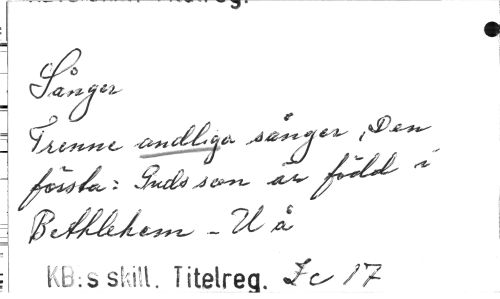 Sånger
Trenne andliga sånger, Den
första: Guds son är född i
Bethlehem - U å
KB:s skill. Titelreg. Zc 17